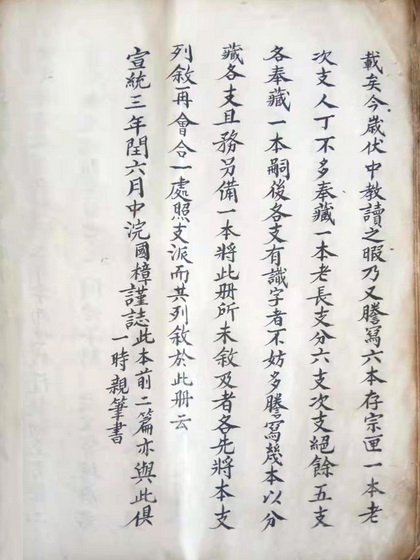 載矣今歲伏中教讀之暇乃又謄寫六本存宗匣一本老
次支人丁不多奉藏一本老長支分六支次支絕餘五支
各奉藏一本嗣後各支有識字者不妨多謄寫幾本以分
藏各支且務另備一本將此册所未敘及者各先將本支
列敘再會合一處照支派而共列敘於此册云
宣統三年閏六月中浣國樟謹誌此本前二篇亦與此俱
一時親筆書